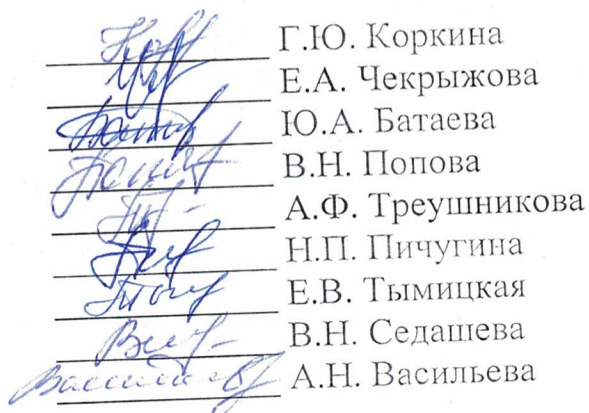 Г.Ю. Коркина
Е.А. Чекрыжова
Ю.А. Батаева
В.Н. Попова
А.Ф. Треушникова
Н.П. Пичугина
Е.В. Тымицкая
В.Н. Седашева
А.Н. Васильева